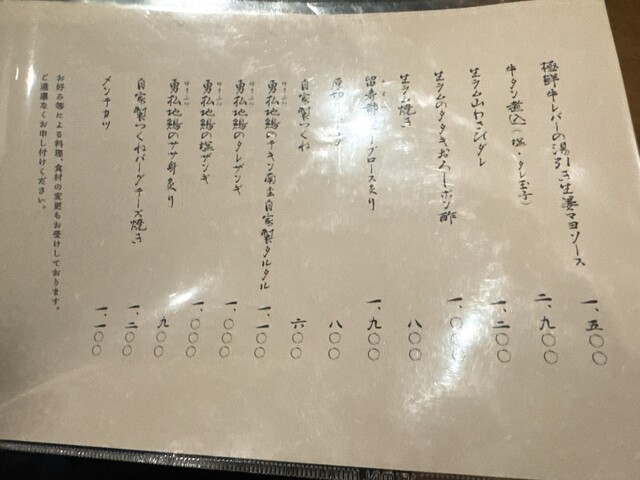 極鮮牛レバーの湯引き生姜マヨソース 一、五〇〇
牛タン煮込(塩・タレ玉子) 二、九〇〇
生ラム山わさびダレ 一、二〇〇
生ラムのタタキおろしポン酢 一、〇〇〇
生ラム焼き 八〇〇
ロース炙り 一、九〇〇
厚切 八〇〇
自家製つくね 六〇〇
勇払地鶏のチキン南蛮自家製タルタル 一、一〇〇
勇払地鶏のタレザンギ 一、〇〇〇
勇払地鶏の塩ザンギ 一、〇〇〇
勇払地鶏のササ身炙り 九〇〇
自家製つくねバーグチーズ焼き 一、二〇〇
メンチカツ 一、一〇〇
お好み等による料理、食材の変更もお受けしております。
ご遠慮なくお申し付けください。